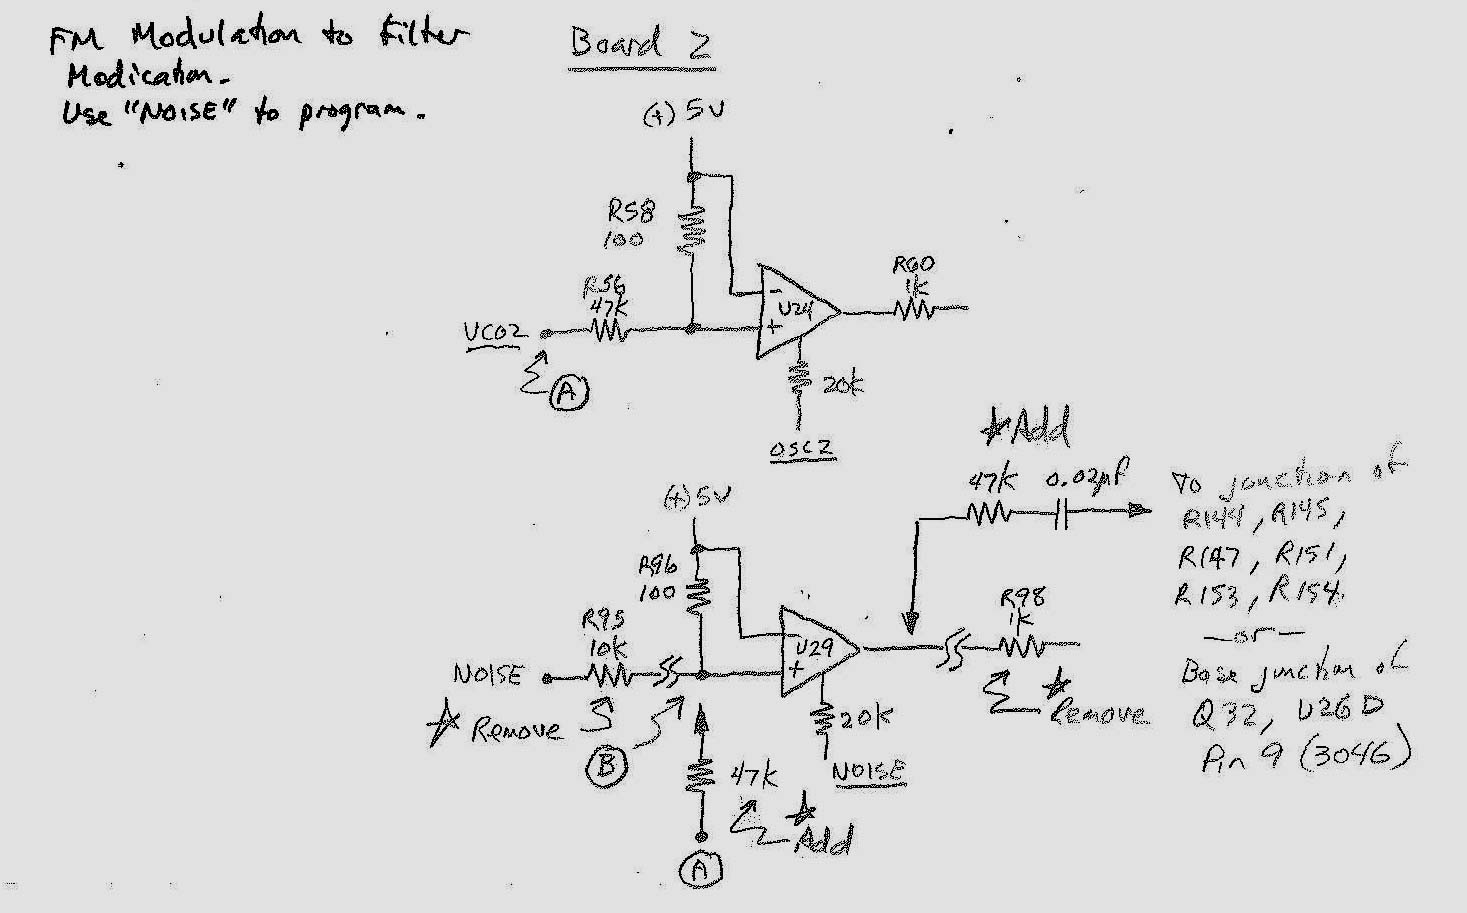 FM Modulation to Filter
Modication.
Use "NOISE" to program.
Board 2
(+) 5V
R58
100
R56
47K
VCO2
A
-
+
U24
R60
1K
20K
OSC2
★Add
47K 0.02µf
To junction of
R144, R145,
R147, R151,
R153, R154.
—or—
Base junction of
Q32, U26D
Pin 9 (3046)
(+) 5V
R96
100
R95
10K
NOISE
★ Remove
B
-
+
U29
R98
1K
★
Remove
20K
NOISE
47K
★
Add
A